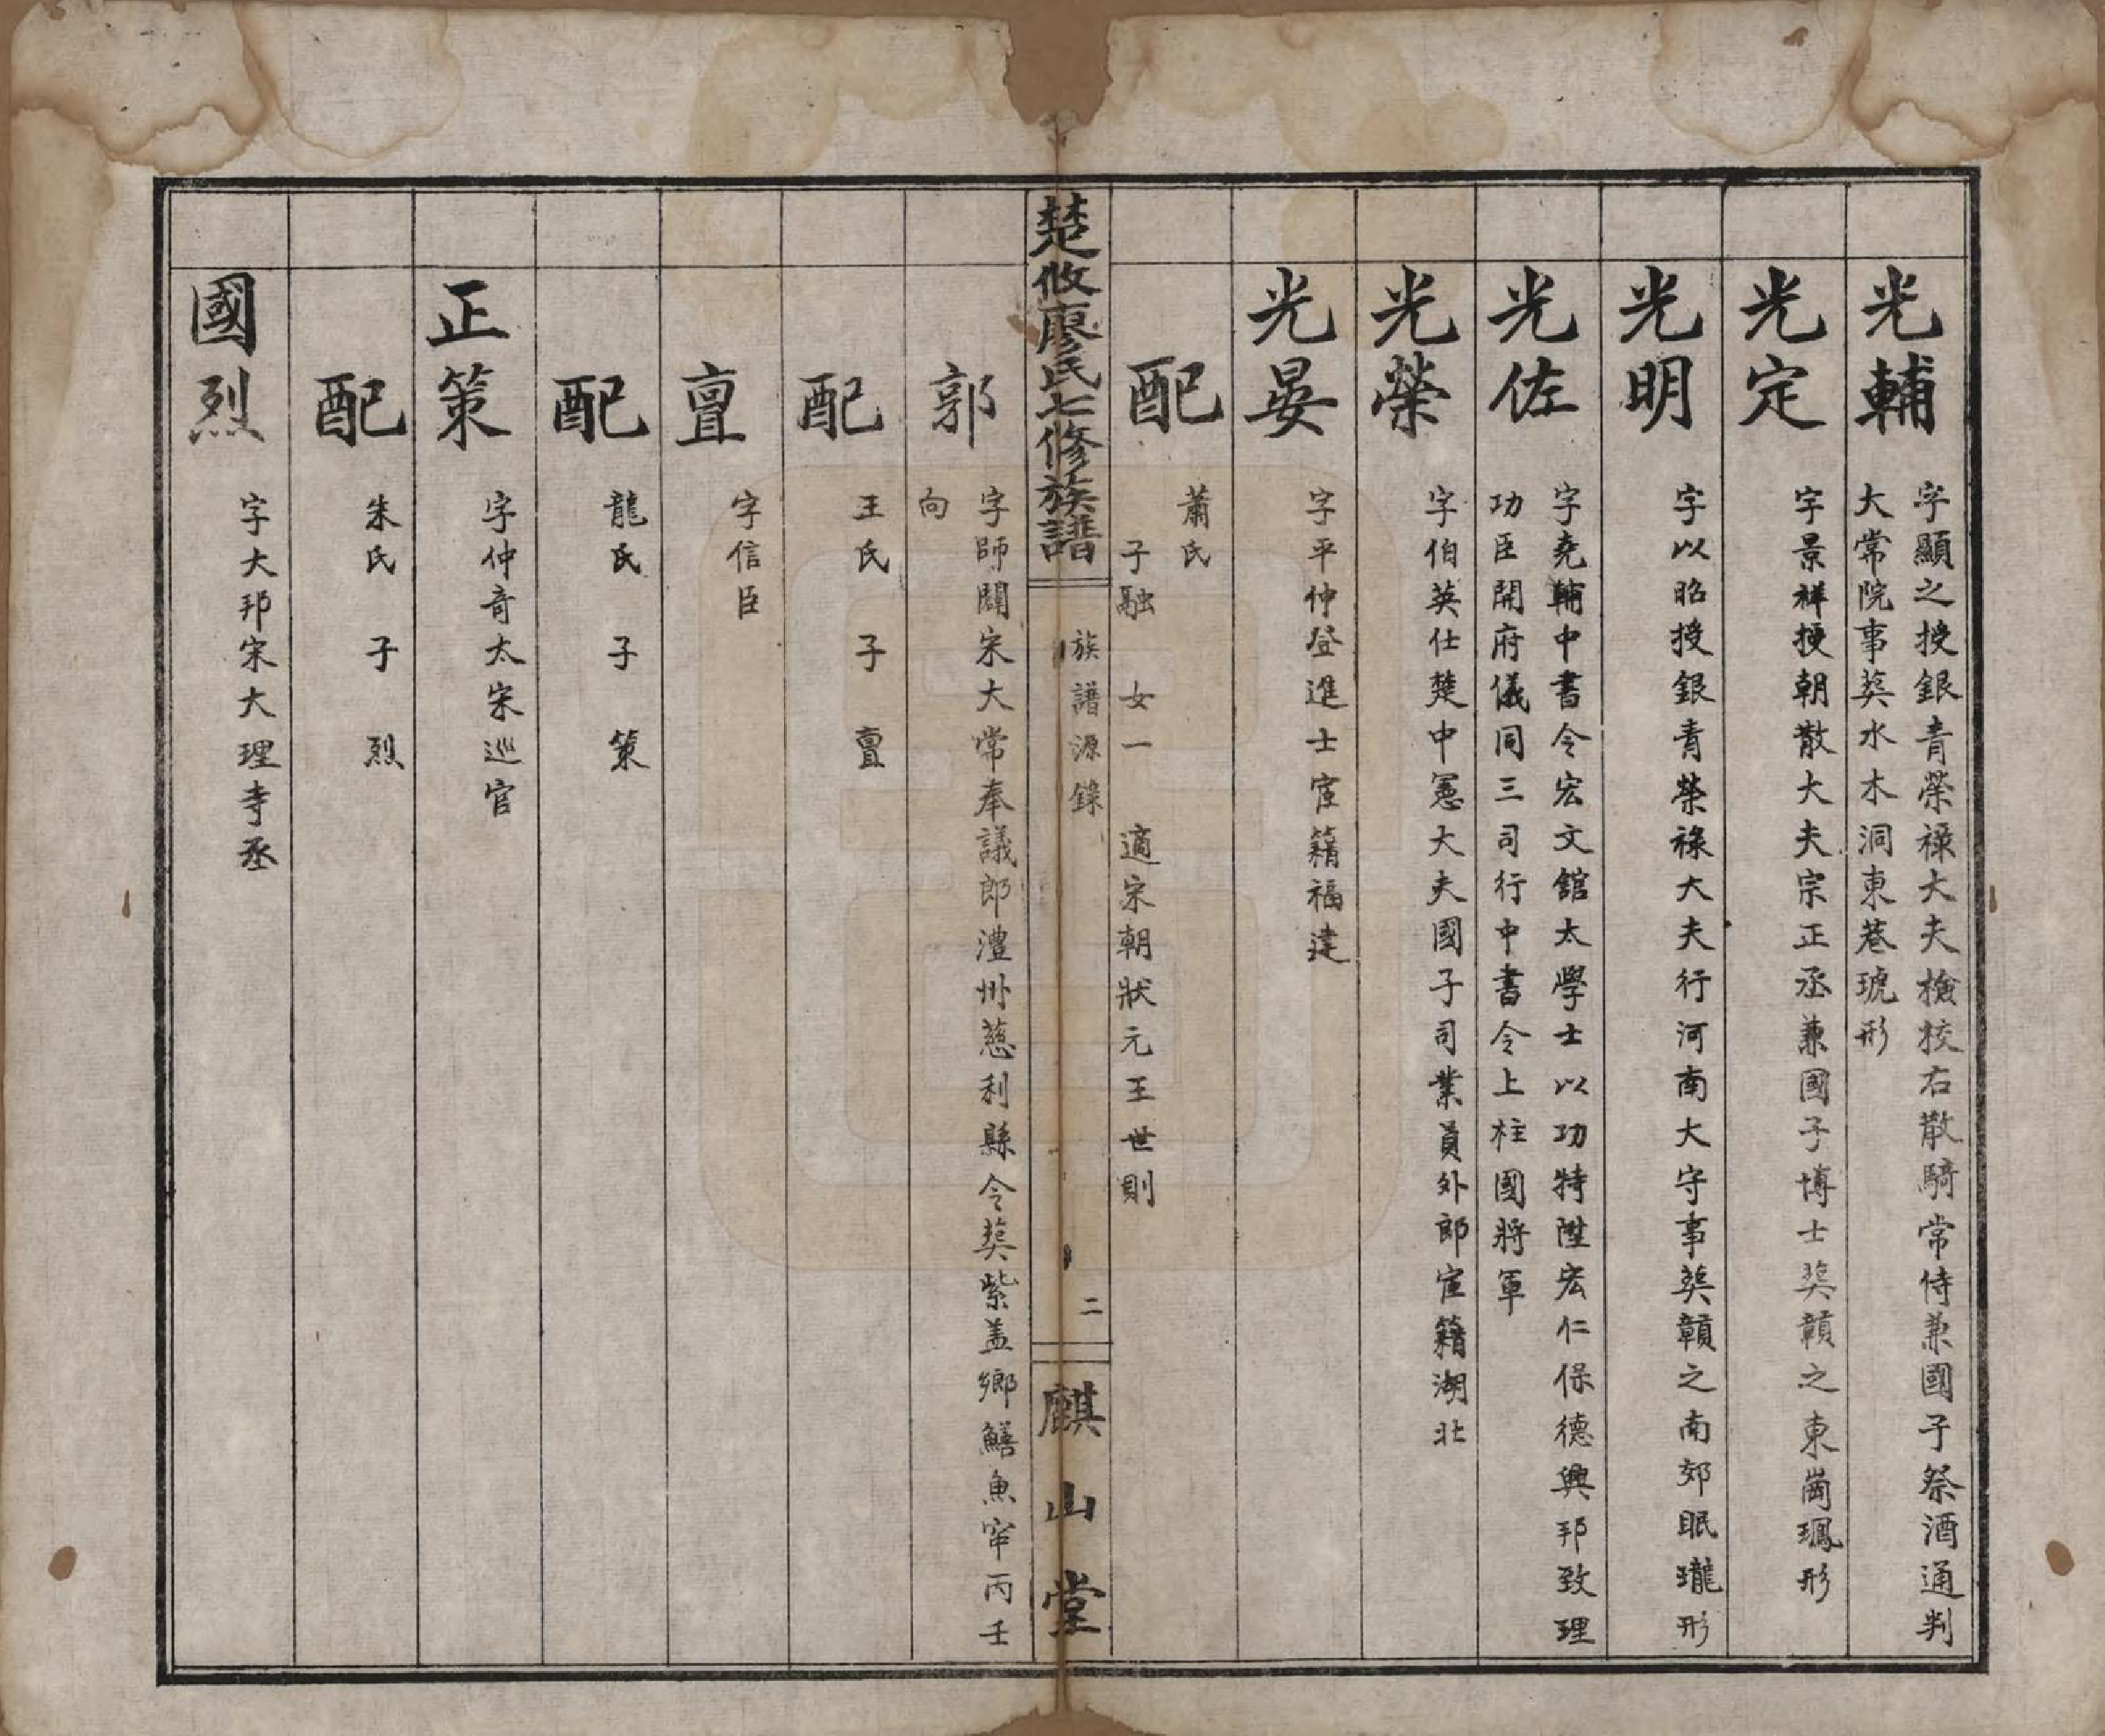 光輔
字顯之授銀青榮祿大夫檢校右散騎常侍兼國子祭酒通判
大常院事葬水木洞東巷琥形
光定
字景祥授朝散大夫宗正丞兼國子博士葬贑之東崗鳯形
光明
字以昭授銀青榮祿大夫行河南大守事葬贑之南郊眠瓏形
光佐
字堯輔中書令宏文舘太學士以功特陞宏仁保德興邦致理
功臣開府儀同三司行中書令上柱國將軍
光榮
字伯英仕楚中憲大夫國子司業員外郎宦籍湖北
光晏
字平仲登進士宦籍福建
配
蕭氏
子融 女一 適宋朝狀元王世則
楚攸廖氏七修族譜
族譜源錄
二
麒山堂
郭
字師闢宋大常奉議郎澧州慈利縣令葬紫盖鄉鱔魚窂丙壬
向
配
王氏 子 亶
亶
字信臣
配
龍氏 子 策
正策
字仲奇太宋巡官
配
朱氏 子 烈
國烈
字大邦宋大理寺丞